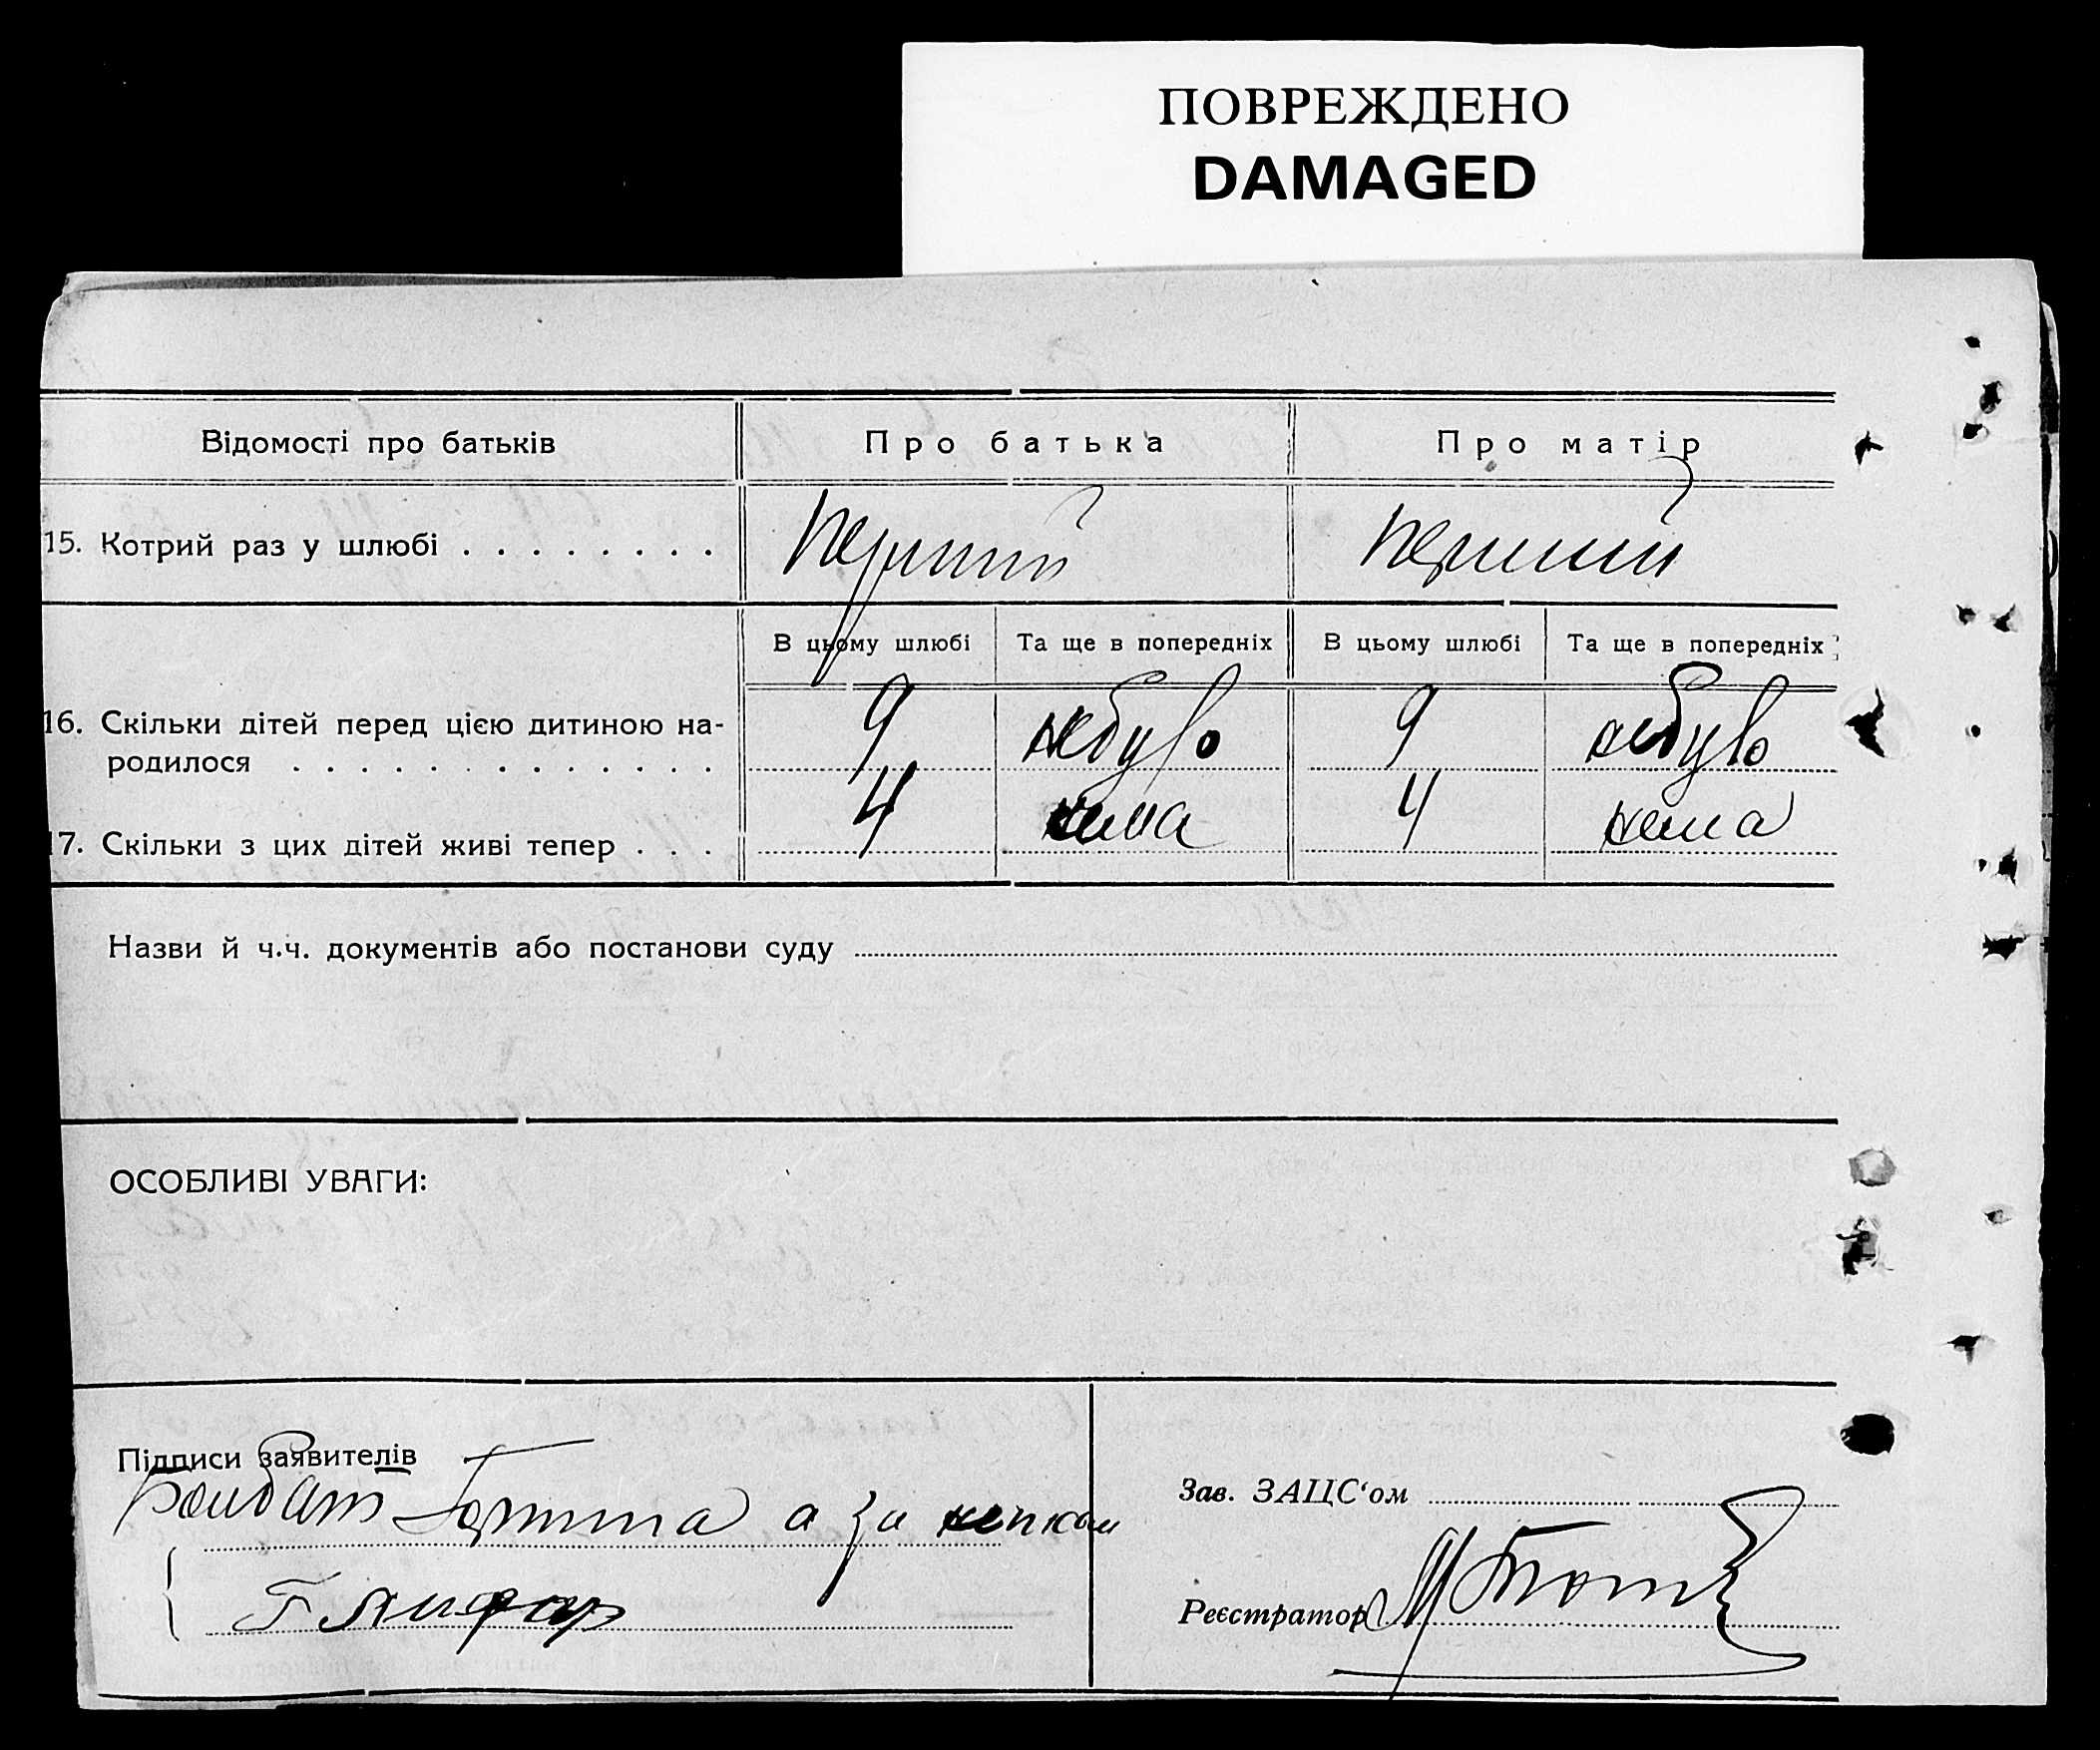 ПОВРЕЖДЕНО
DAMAGED
Відомості про батьків Про батька Про матір
15. Котрий раз у шлюбі . . . . . . . . перший перший
В цьому шлюбі Та ще в попередніх В цьому шлюбі Та ще в попередніх
16. Скільки дітей перед цією дитиною на-
родилося . . . . . . . . . . . . . 9 небуло 9 небуло
17. Скільки з цих дітей живі тепер . . . 4 нема 4 нема
Назви й ч.ч. документів або постанови суду
ОСОБЛИВІ УВАГИ:
Підписи заявителів
а за
Зав. ЗАЦС‘ом
Реєстратор